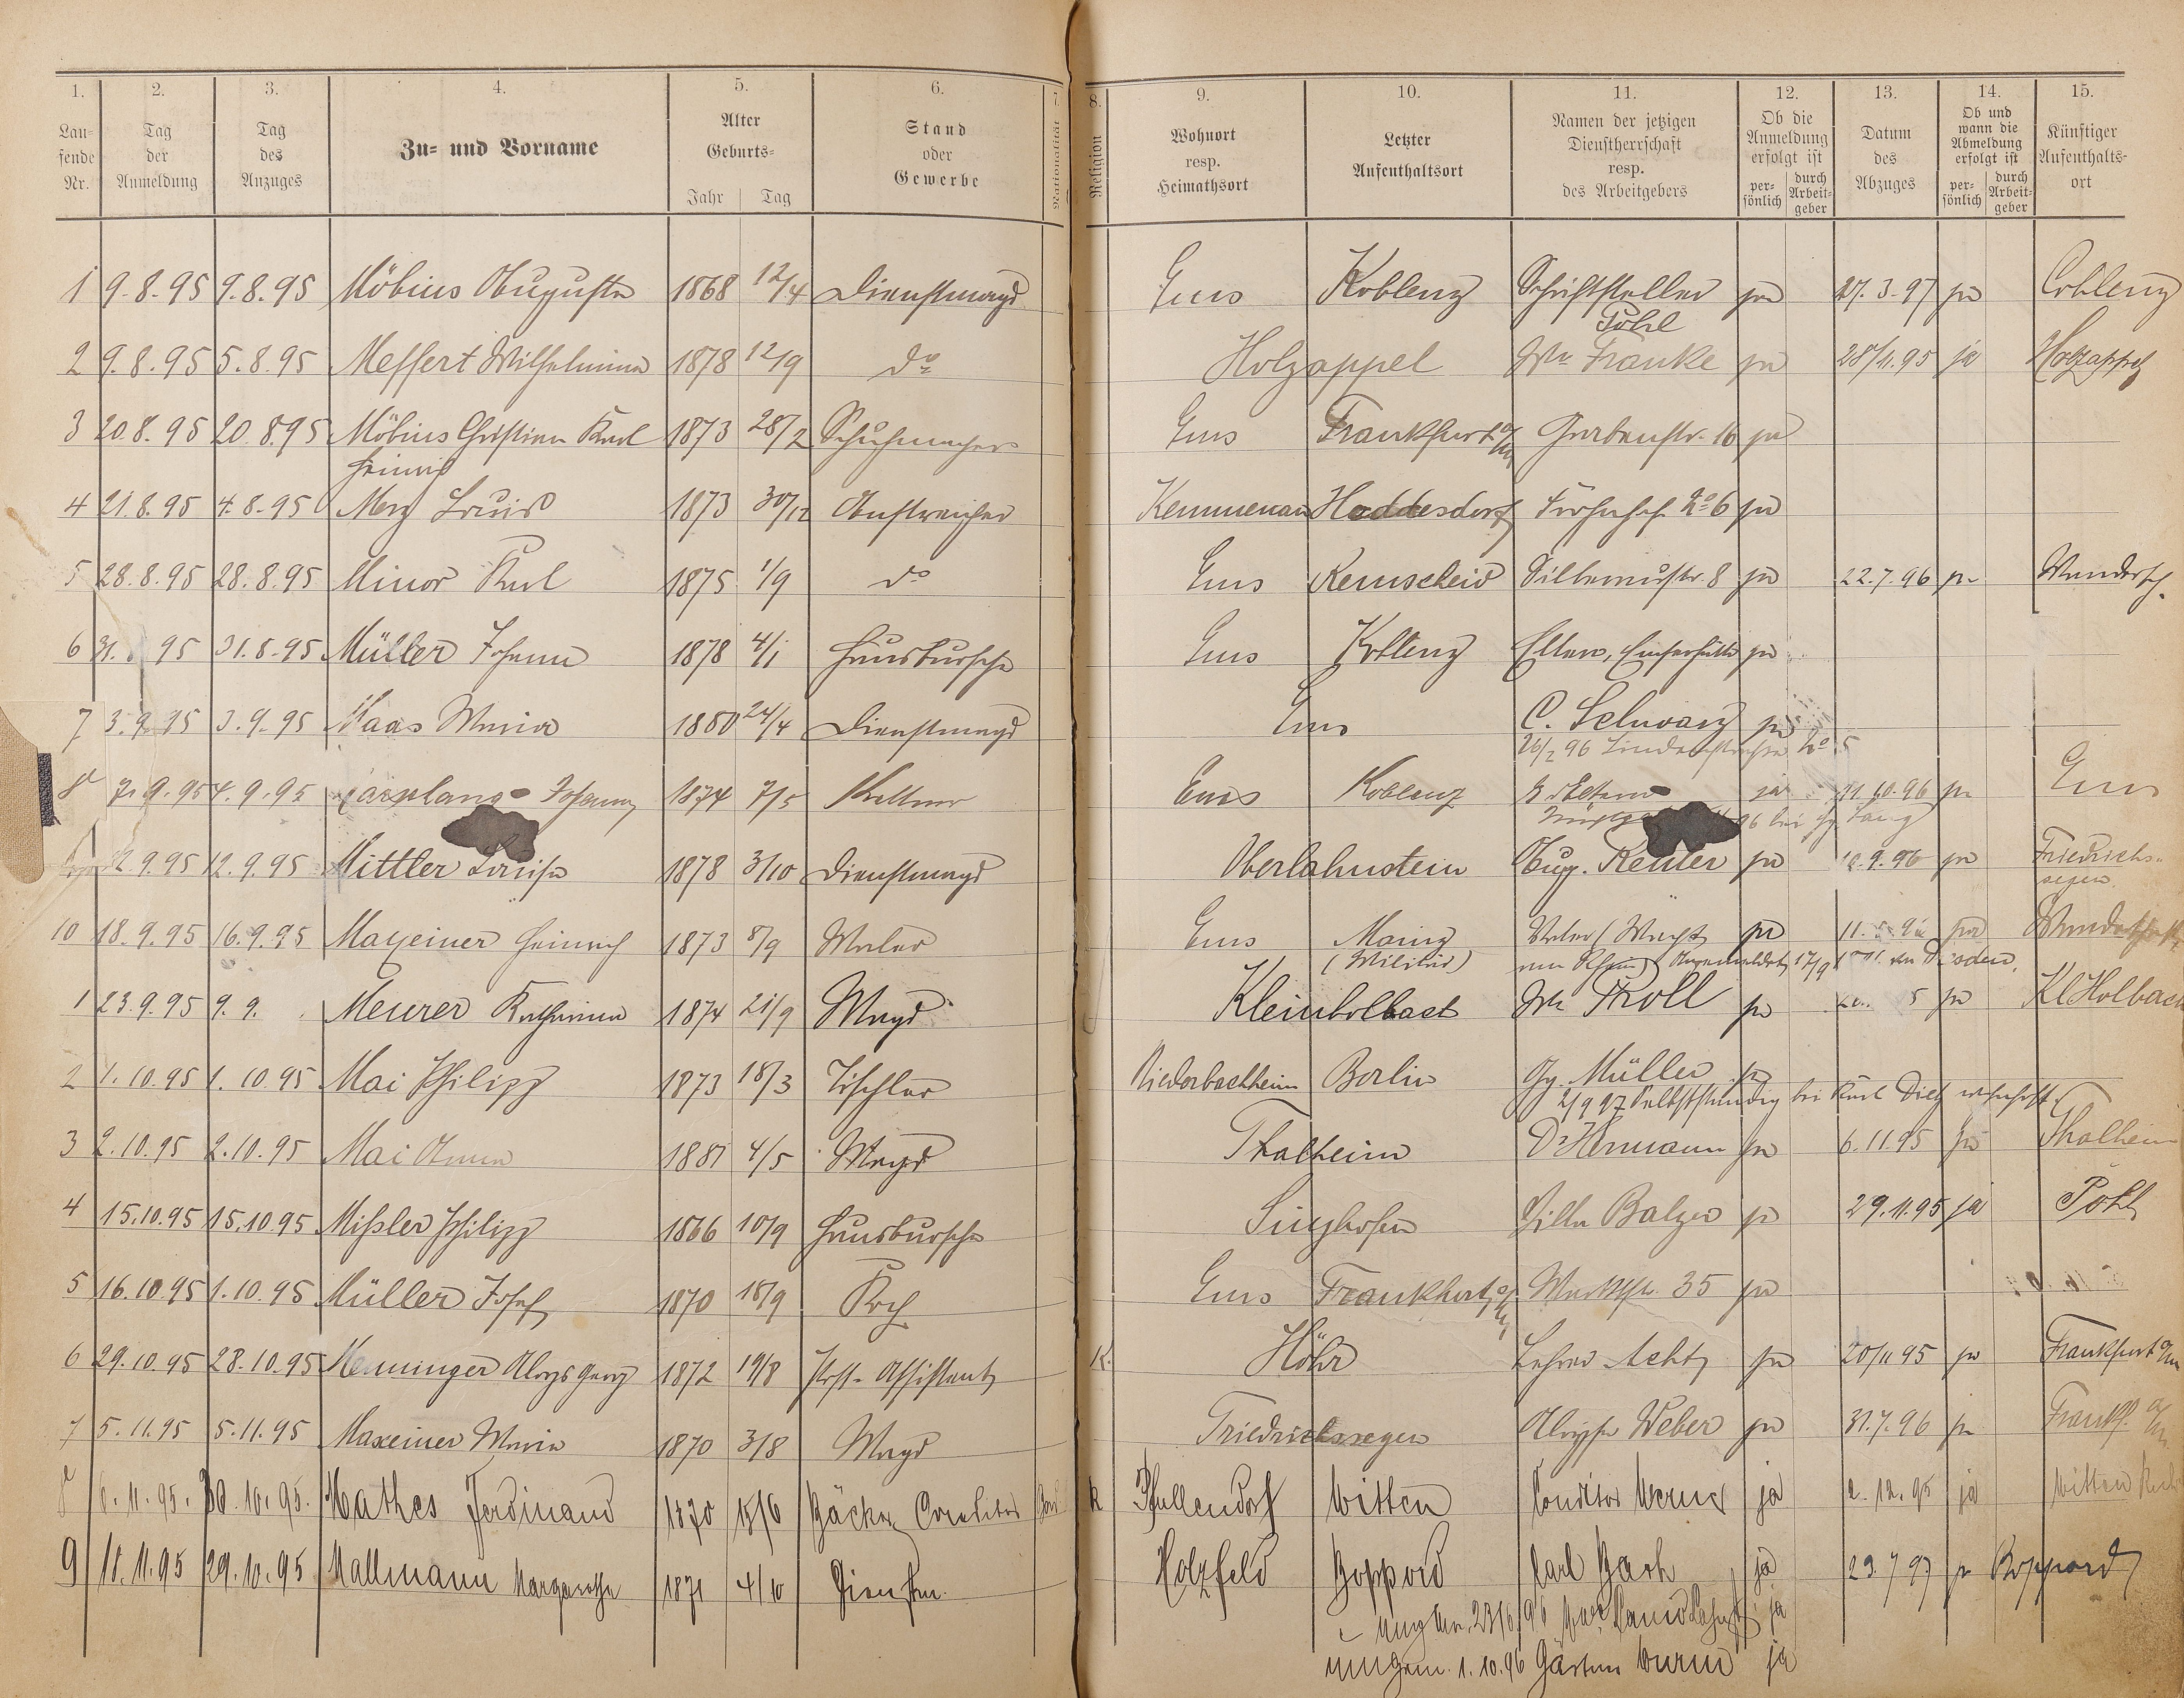 1. 2. 3. 4. 5. 6. 7. 8. 9. 10. 11. 12. 13. 14. 15.
Lau-fende Nr. Tag der Anmeldung Tag des Anzuges Zu- und Vorname Alter Geburts- Jahr Tag Stand oder Gewerbe Nationalität Religion Wohnort resp. Heimathsort Letzter Aufenthaltsort Namen der jetzigen Dienstherrschaft resp. des Arbeitgebers Ob die Anmeldung erfolgt ist per-sönlich durch Arbeit-geber Datum des Abzuges Ob und wann die Abmeldung erfolgt ist per-sönlich durch Arbeit-geber Künftiger Aufenthalts-ort
1 9.8.95 9.8.95 Möbius Auguste 1868 12/4 Dienstmagd Ems Koblenz Schriftsteller ja 27.3.97 ja Coblenz
Pohl
2 9.8.95 5.8.95 Meffert Wilhelmine 1878 12/9 do Holzappel Ww Franke ja 28/11.95 ja Holzappel
3 20.8.95 20.8.95 Möbius Christian Karl 1873 28/2 Schuhmacher Ems Frankfurt a/M Grabenstr. 16 ja
Heinrich
4 21.8.95 4.8.95 Merz Louis 1873 30/12 Anstreicher Kemmenau Heddesdorf No 6 ja
5 28.8.95 28.8.95 Minor Karl 1875 1/9 do Ems Remscheid Silberaustr. 8 ja 22.7.96 ja Wandersch.
6 31. 95 31.8.95 Müller Johann 1878 4/1 Hausbursche Ems Koblenz Eltern, Emserhütte ja
7 3.9.95 3.9.95 Maas Maria 1880 24/4 Dienstmagd Ems C. Schwarz ja
26/2 96 Lindenstrasse No 5
8 7.9.95 4.9.95 Johann 1874 7/5 Kellner Ems Koblenz Eltern ja 11.10.96 ja Ems
96 bei Lang
12.9.95 12.9.95 Mittler Louise 1878 3/10 Dienstmagd Oberlahnstein Aug. Reuter ja 10.9.96 ja Friedrichs-
segen
10 18.9.95 16.9.95 Mayeiner Heinrich 1873 8/9 Maler Ems Mainz ja 11. ja
(Militär) Angemeldet 17/9
1 23.9.95 9.9. Meurer Katharina 1874 21/9 Magd Kleinholbach Ww Troll ja 5 ja Kl Holbach
2 1.10.95 1.10.95 Mai Philipp 1873 18/3 Tischler Niederbachheim Berlin Gg. Müller ja
2/9 97 Selbstständig bei Karl Dietz wohnhaft
3 2.10.95 2.10.95 Mai Anna 1881 4/5 Magd Thalheim Dr Hermann ja 6.11.95 ja Thalheim
4 15.10.95 15.10.95 Mißler Philipp 1866 10/9 Hausbursche Singhofen Villa Balzer ja 29.11.95 ja Pohl
5 16.10.95 1.10.95 Müller Josef 1870 18/9 Koch Ems Frankfurt a/M Marktstr. 35 ja
6 29.10.95 28.10.95 Memminger Aloys Georg 1872 19/8 Post-Assistent K. Höhr Lehrer Acht ja 20/11 95 ja Frankfurt a/M
7 5.11.95 5.11.95 Maxeiner Maria 1870 3/8 Magd Friedrichssegen Aloyse Weber ja 31.7.96 ja Frankf. a/M.
8 6.11.95. 30.10.95. Mathes Ferdinand 1870 15/6 Bäcker Conditor Bad. k Pfullendorf Witten Conditor Werner ja 2.12.95 ja Witten
9 11.11.95 29.10.95 Mallmann Margarethe 1871 4/10 Dienstm. Holzfeld Boppard Carl Bach ja 23.7 97 ja Boppard
23/6/96 ja
umgem. 1.10.96 Gärtner Wurm ja